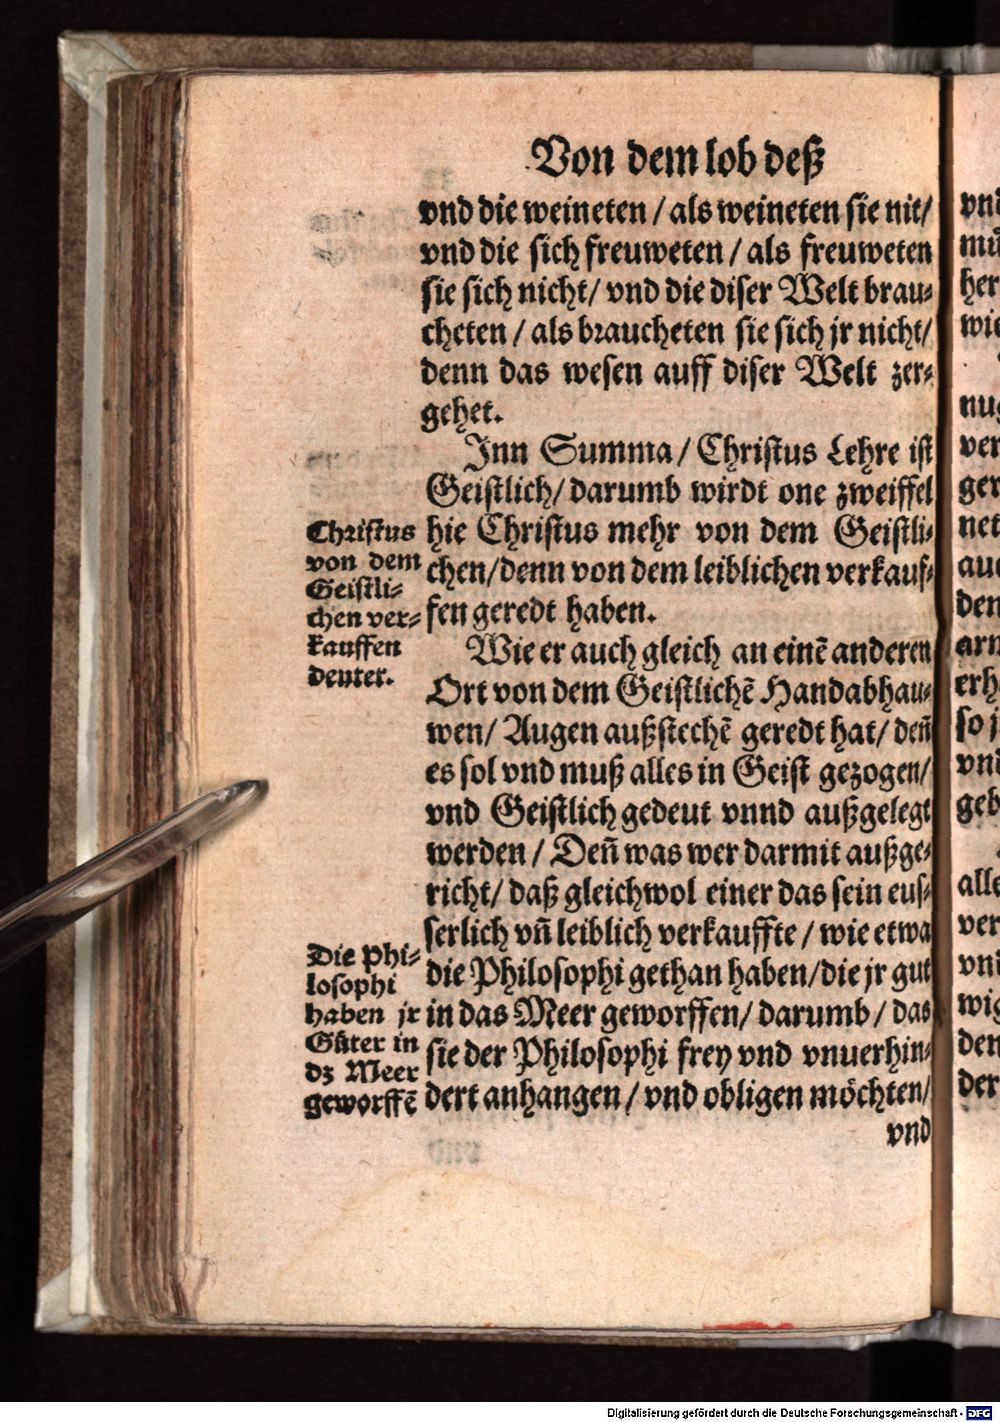 Von dem lob deß
vnd die weineten / als weineten sie nit/
vnd die sich freuweten / als freuweten
sie sich nicht/ vnd die diser Welt brau⸗
cheten / als braucheten sie sich jr nicht/
denn das wesen auff diser Welt zer⸗
gehet.
Inn Summa / Christus Lehre ist
Geistlich/ darumb wirdt one zweiffel
hie Christus mehr von dem Geistli⸗
chen/denn von dem leiblichen verkauf⸗
fen geredt haben.
Christus
von dem
Geistli⸗
chen ver⸗
kauffen
deutet.
Wie er auch gleich an einẽ anderen
Ort von dem Geistlichẽ Handabhau⸗
wen/ Augen außstechẽ geredt hat/ deñ
es sol vnd muß alles in Geist gezogen/
vnd Geistlich gedeut vnnd außgelegt
werden / Deñ was wer darmit außge⸗
richt/ daß gleichwol einer das sein eus⸗
serlich vñ leiblich verkauffte / wie etwa
die Philosophi gethan haben/die jr gut
in das Meer geworffen/ darumb / das
sie der Philosophi frey vnd vnuerhin⸗
dert anhangen / vnd obligen möchten/
vnd
Die Phi⸗
losophi
haben jr
Gůter in
dz Meer
geworffẽ
vnd
her
wie
nug
ver
ger
net
auc
den
erh
so j
vnd
geb
alle
ver
vnd
wig
den
der
Digitalisierung gefördert durch die Deutsche Forschungsgemeinschaft - DFG